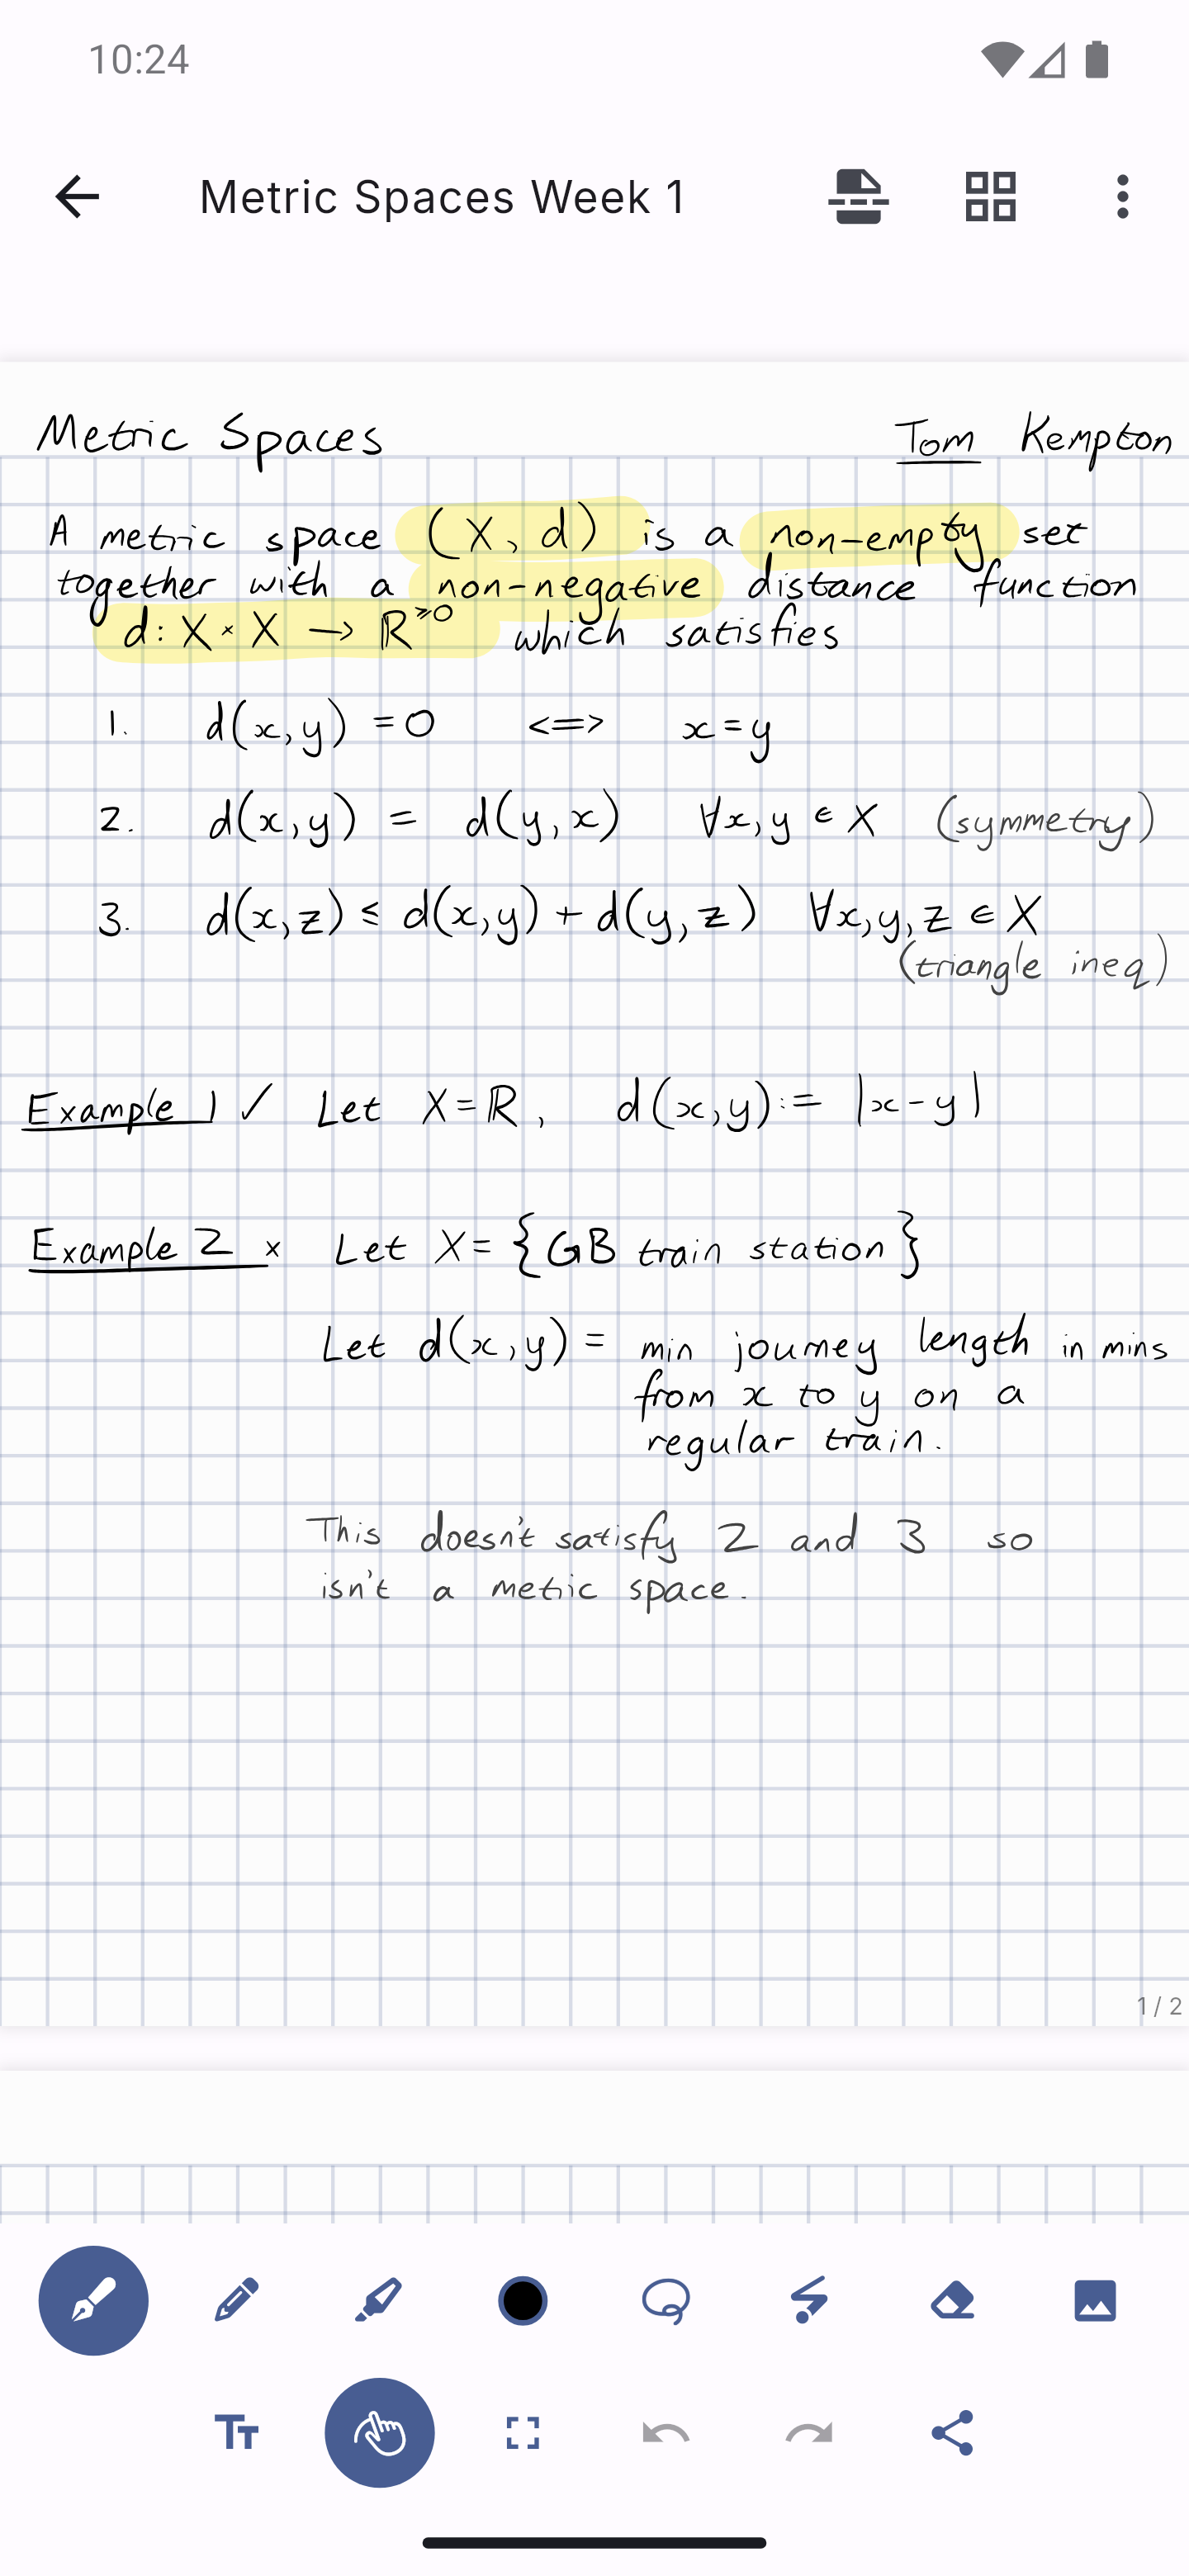 10:24
Metric Spaces Week 1
Metric Spaces Tom Kempton
A metric space (X, d) is a non-empty set
together with a non-negative distance function
d: X × X → ℝ^≥0 which satisfies
1. d(x,y) = 0 <=> x=y
2. d(x,y) = d(y,x) ∀x,y ∈ X (symmetry)
3. d(x,z) ≤ d(x,y) + d(y,z) ∀x,y,z ∈ X
(triangle ineq)
Example 1 ✓ Let X=ℝ, d(x,y):= |x-y|
Example 2 × Let X= {GB train station}
Let d(x,y) = min journey length in mins
from x to y on a
regular train.
This doesn't satisfy 2 and 3 so
isn't a metric space.
1 / 2
Tт